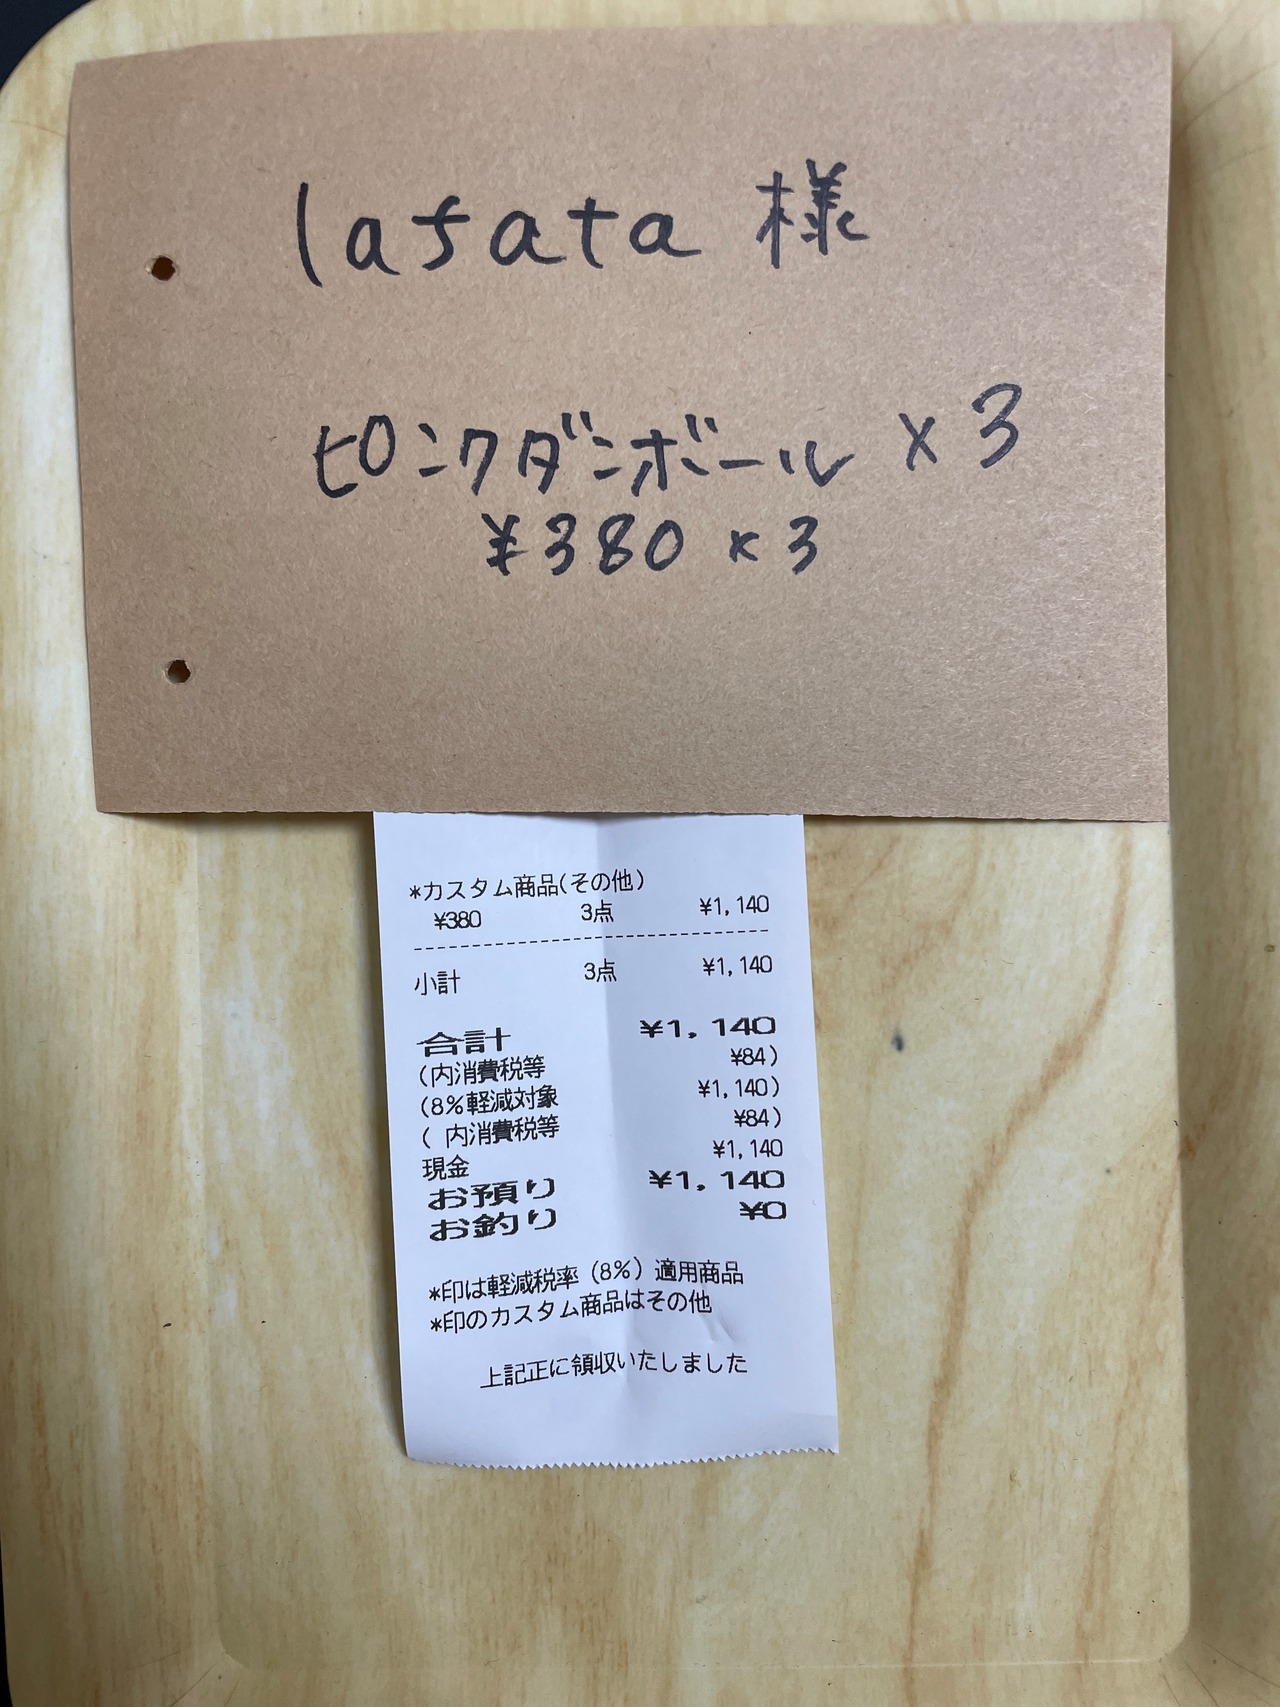 lasata 様
ピンクダンボール × 3
¥380 × 3
*カスタム商品(その他)
¥380 3点 ¥1,140
小計 3点 ¥1,140
合計 ¥1,140
(内消費税等 ¥84)
(8%軽減対象 ¥1,140)
( 内消費税等 ¥84)
現金 ¥1,140
お預り ¥1,140
お釣り ¥0
*印は軽減税率(8%)適用商品
*印のカスタム商品はその他
上記正に領収いたしました